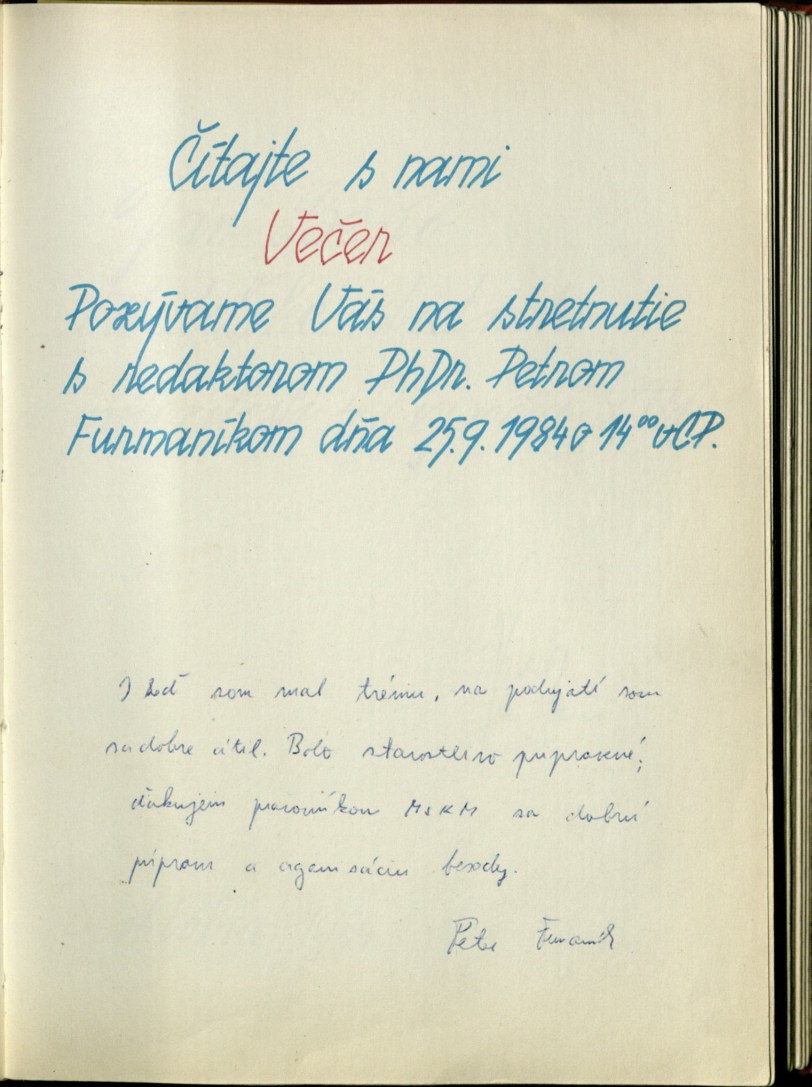 Čítajte s nami
Večer
Pozývame Vás na stretnutie
s redaktorom PhDr. Petrom
Furmaníkom dňa 25.9.1984 o 14⁰⁰ v CP.
I keď som mal trému, na podujatí som
sa dobre cítil. Bolo starostlivo pripravené;
ďakujem pracovníkom MsKM za dobrú
prípravu a organizáciu besedy.
Peter Furmaník